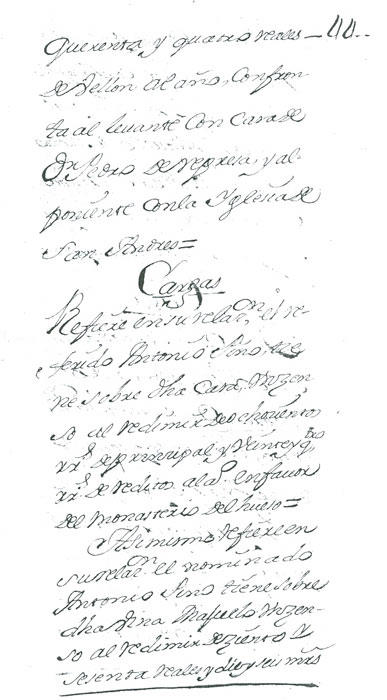 Querenta y quatro reales - 44..
de Vellon al año, Confron
ta al levante Con Casa de
Dn Pedro de Negrera, y al
poniente Con la Yglesia de
San Andres =
Cargas
Refiere en su relaz.on el re
ferido Antonio Sino, tie
ne sobre dha Casa, Un Zen
so al redimir de ochozientos
rr.s de prinzipal, y Veinte y q.tro
rr.s de reditos al a.o en favor
del Monasterio del hueso =
Asimismo refiere en
su relaz.on el nominado
Antonio Sino tiene sobre
dha Viña Majuelo Un Zen-
so al redimir de ziento y
sesenta reales y diez y seis mrs